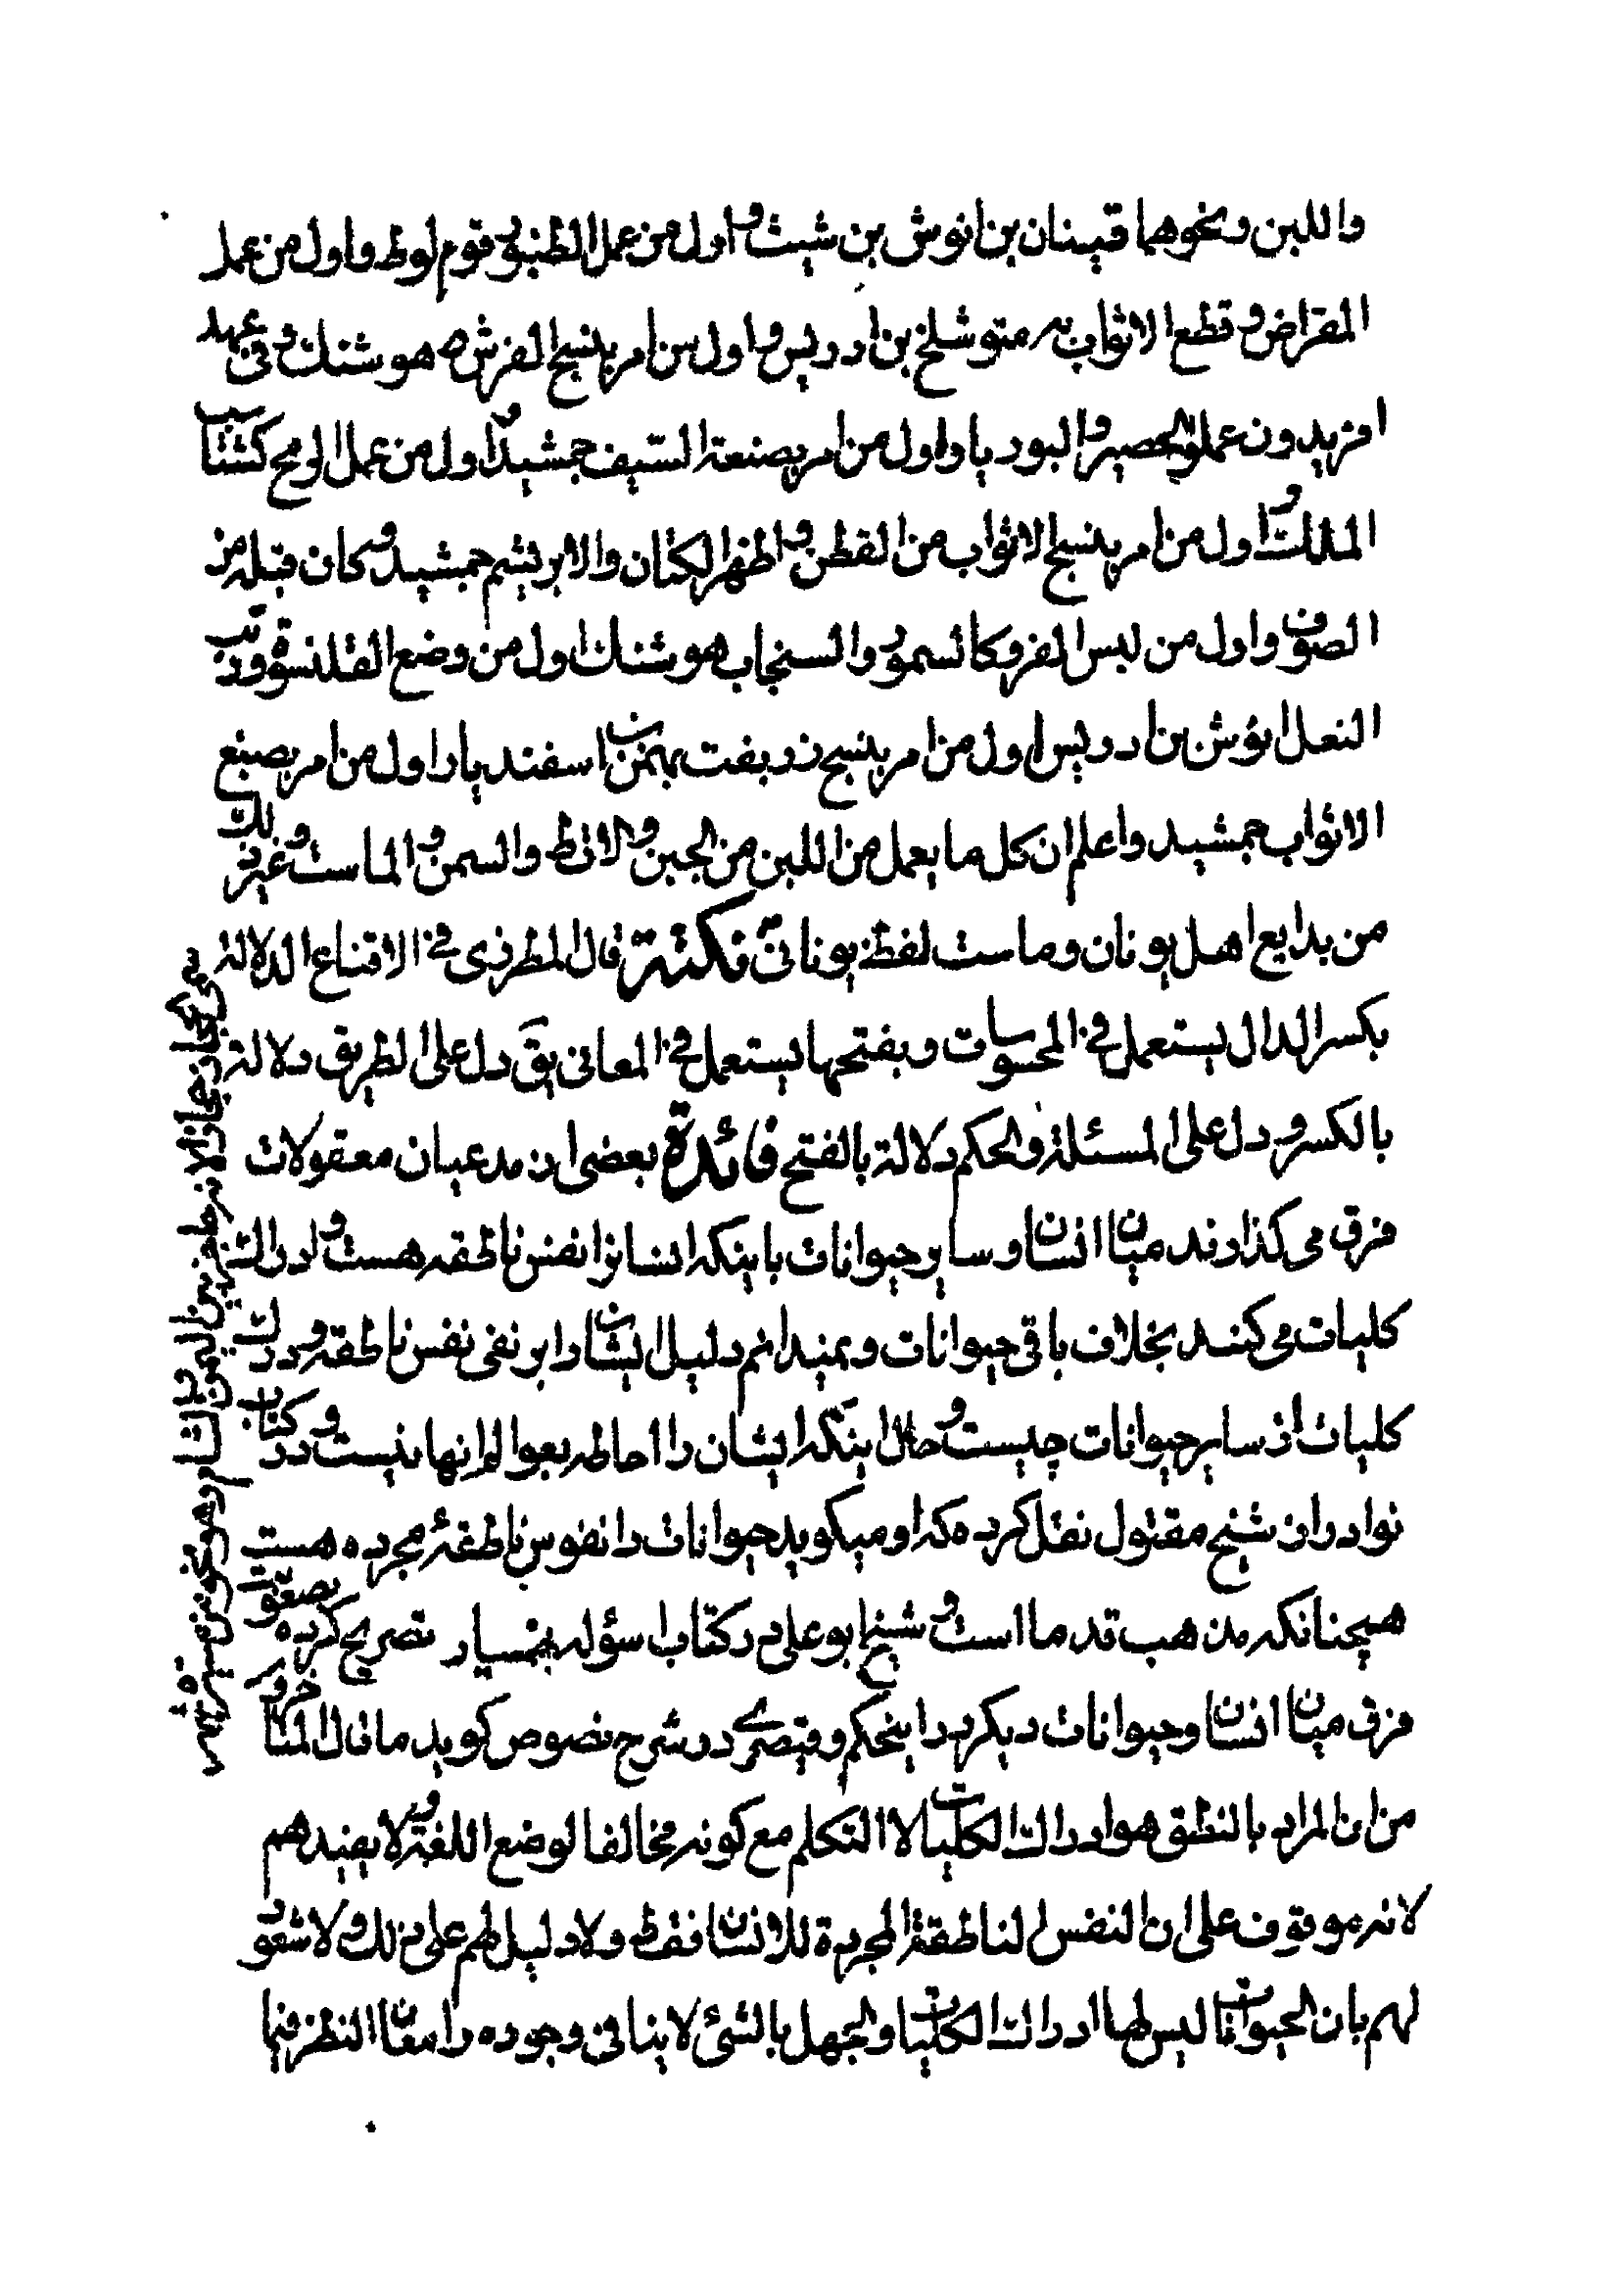 واللبن ونحوهما قينان بن انوش بن شيث و اول من عمل الطنبور قوم لوط واول من عمل
المقراض و قطع الاثواب به متوشلخ بن ادريس و اول من امر بنسج الفرش هوشنك و في عهد
افريدون عملوا الحصير و البوريا و اول من امر بصنعة السيف جمشيد و اول من عمل الرمح كشتاسب
الملك و اول من امر بنسج الاثواب من القطن و اظهر الكتان والابريشم جمشيد و كان قبله من
الصوف واول من لبس الفرو كالسمور والسنجاب هوشنك اول من وضع القلنسوة ورتب
النعل انوش بن ادريس اول من امر بنسج زربفت بهمن بن اسفنديار اول من امر بصبغ
الاثواب جمشيد واعلم ان كل ما يعمل من اللبن من الجبن و الاقط والسمن و الماست و غير ذلك
من بدايع اهل يونان وماست لفظ يوناني نكتة قال المطرزى في الاقناع الدلالة
بكسر الدال يستعمل في المحسوسات وبفتحها يستعمل في المعاني يق دل على الطريق دلالة
بالكسر و دل على المسئلة والحكم دلالة بالفتح فائدة بعضى از مدعيان معقولات
فرق مى كذارند ميان انسان و ساير حيوانات باينكه انسانرا نفس ناطقه هست و ادراك
كليات مى كنند بخلاف باقى حيوانات و نميدانم دليل ايشان را بر نفى نفس ناطقه و درك
كليات از ساير حيوانات چيست و حال اينكه ايشان را احاطه بعوالم انها نيست و در كتاب
نوادر از شيخ مقتول نقل كرده كه او ميكويد حيوانات را نفوس ناطقۀ مجرده هست
هميچنانكه مذهب قدما است و شيخ ابوعلى در كتاب اسؤله بهمنيار تصريح كرده بصعوبت
فرق ميان انسان و حيوانات ديكر در اينحكم و قيصرى در شرح فصوص كويد ما قال المتاخرون
من ان المراد بالنطق هو ادراك الكليات لا التكلم مع كونه مخالفا لوضع اللغة و لا يفيدهم
لانه موقوف على ان النفس الناطقة المجردة للانسان فقط ولا دليل لهم على ذلك و لا شعور
لهم بان الحيوانات ليس لها ادراك الكليات و الجهل بالشئ لا ينافى وجوده و امعان النظر فيما